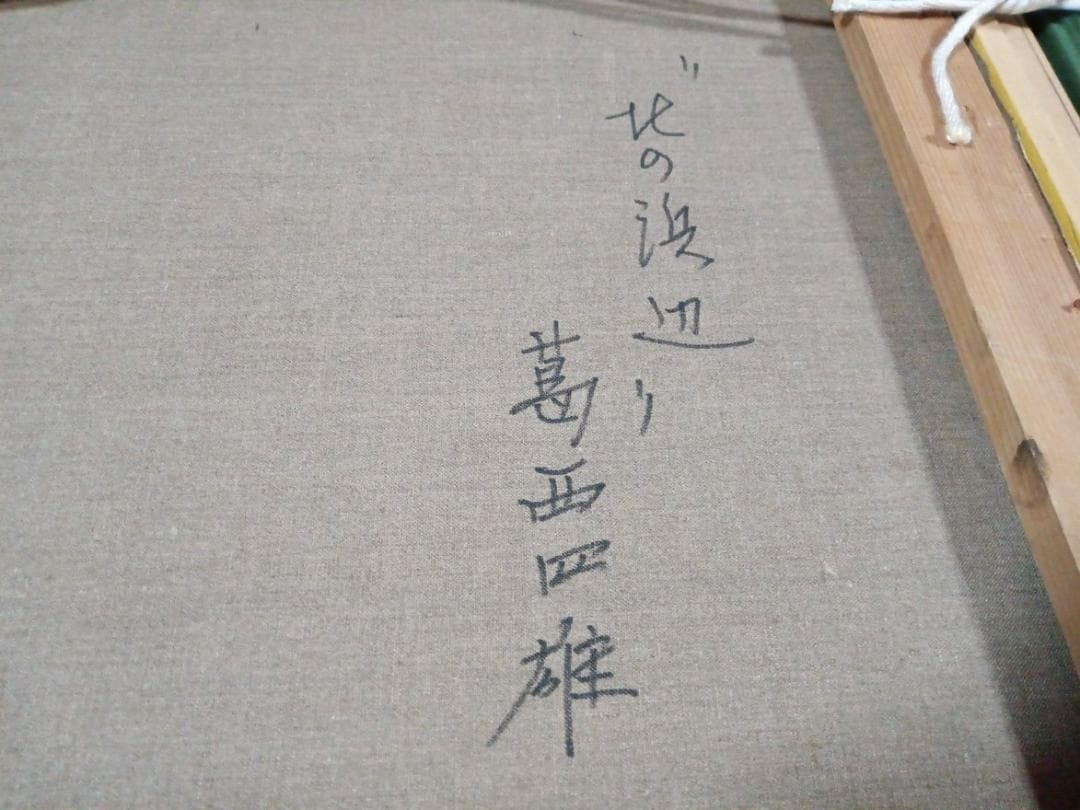 "北の浜辺"
葛西四雄